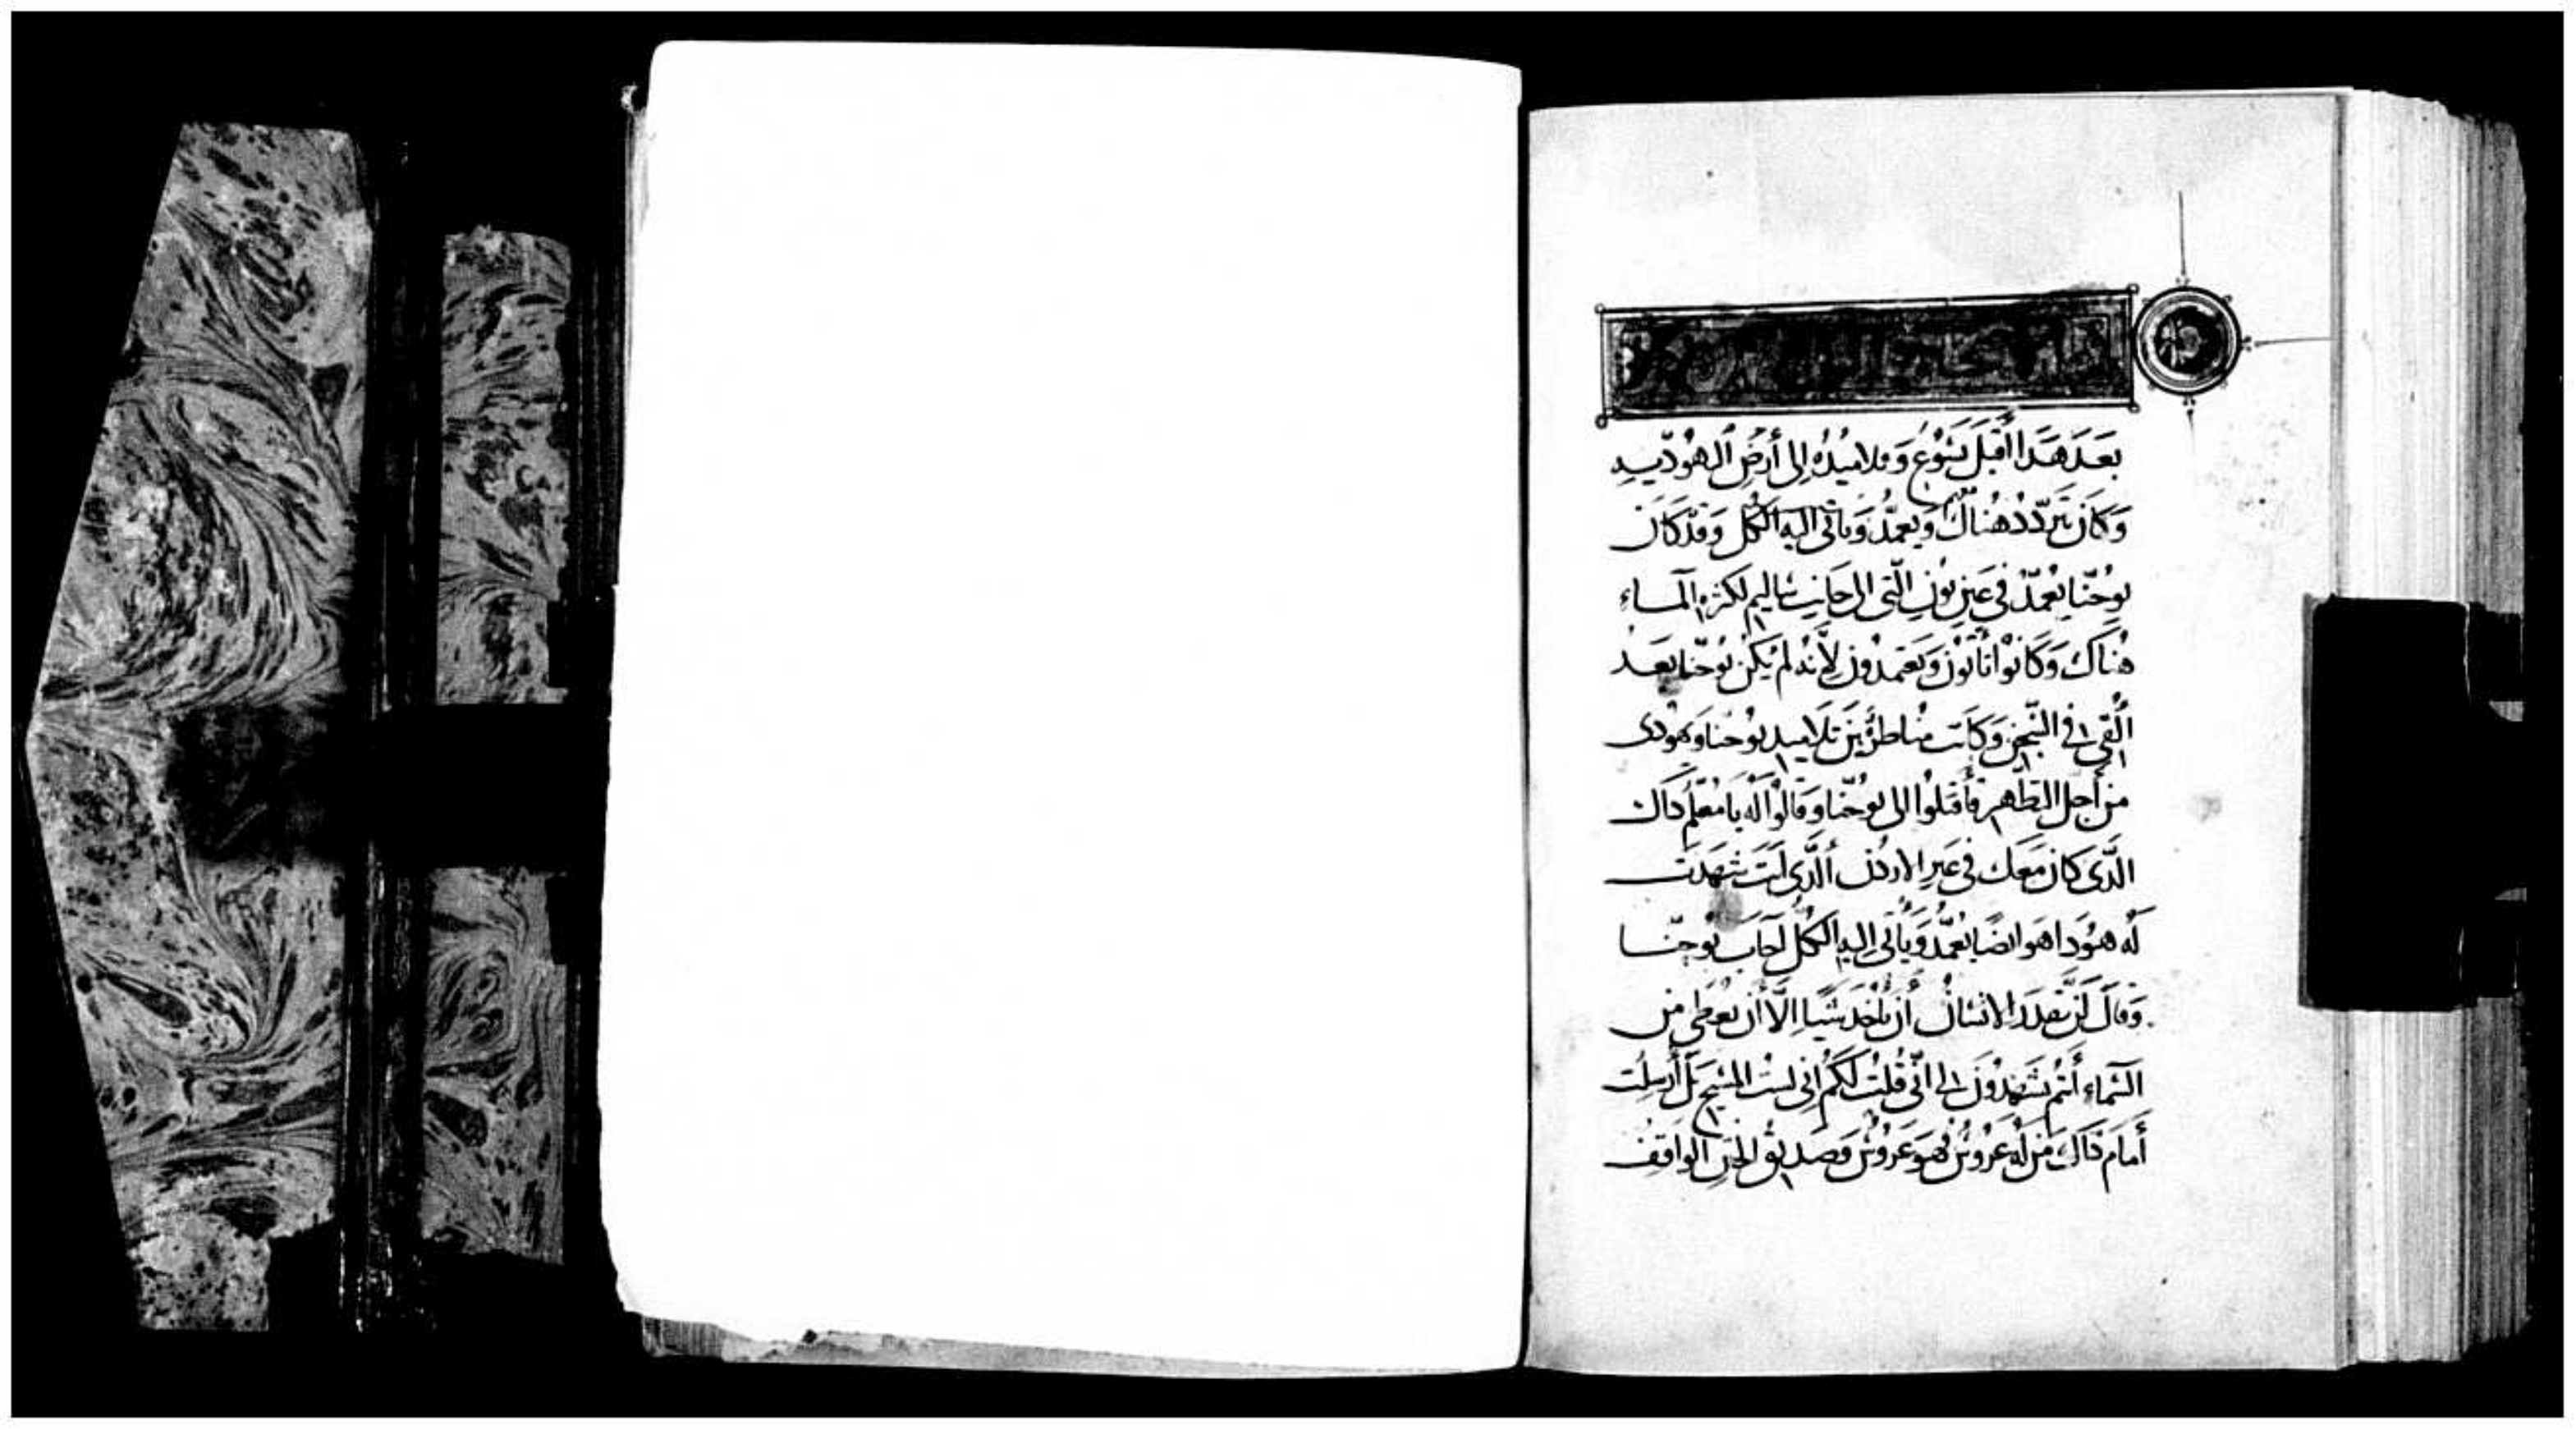 بَعدَ هَدَا أَقبَلَ يَسُوْع وَتلاميدُه إِلى أَرضِ اليهُوديّه
وَكانَ يَتردّدُ هُناكَ وَيعمّدُ وَياتي اليه الكُل وَقدكانَ
يُوحَنّا يُعمّدُ في عَين نُون الّتي الى جَانِب سَاليم لكثرة المَاءِ
هُناكَ وَكَانوْا يَأتُون وَيَعتمدُون لأنه لم يَكُن يُوحَنّا بَعدُ
أُلقي في السّجن وَكانَت مُناظرةٌ بَين تَلاميد يُوحنا وَيهودى
من أَجل التطّهر فأَقبَلوا الى يُوحَنّا وَقالوْا لَه يا مُعَلّم دَاك
الّدى كانَ مَعَك في عَبر الاردُن الّدى أنتَ شَهَدتَ
لَه هُودا هو ايضًا يُعمّدُ وَيأتي اليهِ الكُلّ اجابَ يُوحنّا
وَقالَ لَن يَقدرَ الانسَانُ أَن يأخُدَ شَيًا الّا أن يُعطى من
السّماءِ أَنتُم تشهَدُونَ لي انّي قُلتُ لكُم اني لستُ المسيح بَل أُرسِلتُ
أَمَام دَاكَ مَن لَه عَرُوسٌ فهوَ عَروسٌ وَصَديقُ الختن الواقِفُ